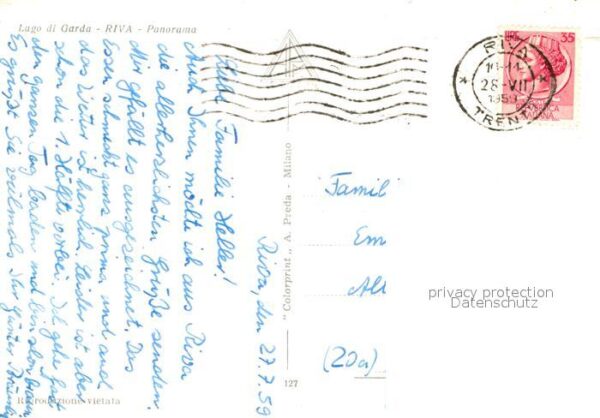 Lago di Garda - RIVA - Panorama
Riva, den 27.7.59
Liebe Familie Heller!
Auch Ihnen möchte ich aus Riva
die allerherzlichsten Grüße senden.
Mir gefällt es ausgezeichnet. Das
Essen schmeckt ganz prima und auch
das Wetter ist herrlich. Leider ist aber
schon die 1. Hälfte vorbei. Ich gehe fast
den ganzen Tag baden und bin schon braun.
Es grüßt Sie vielmals Ihr Günter
Riproduzione vietata
"Colorprint" A. Preda - Milano
127
RIVA
10-11
28-VII
1959
TRENTO
LIRE 35
Famil
Em
Alt
(20a)
privacy protection
Datenschutz